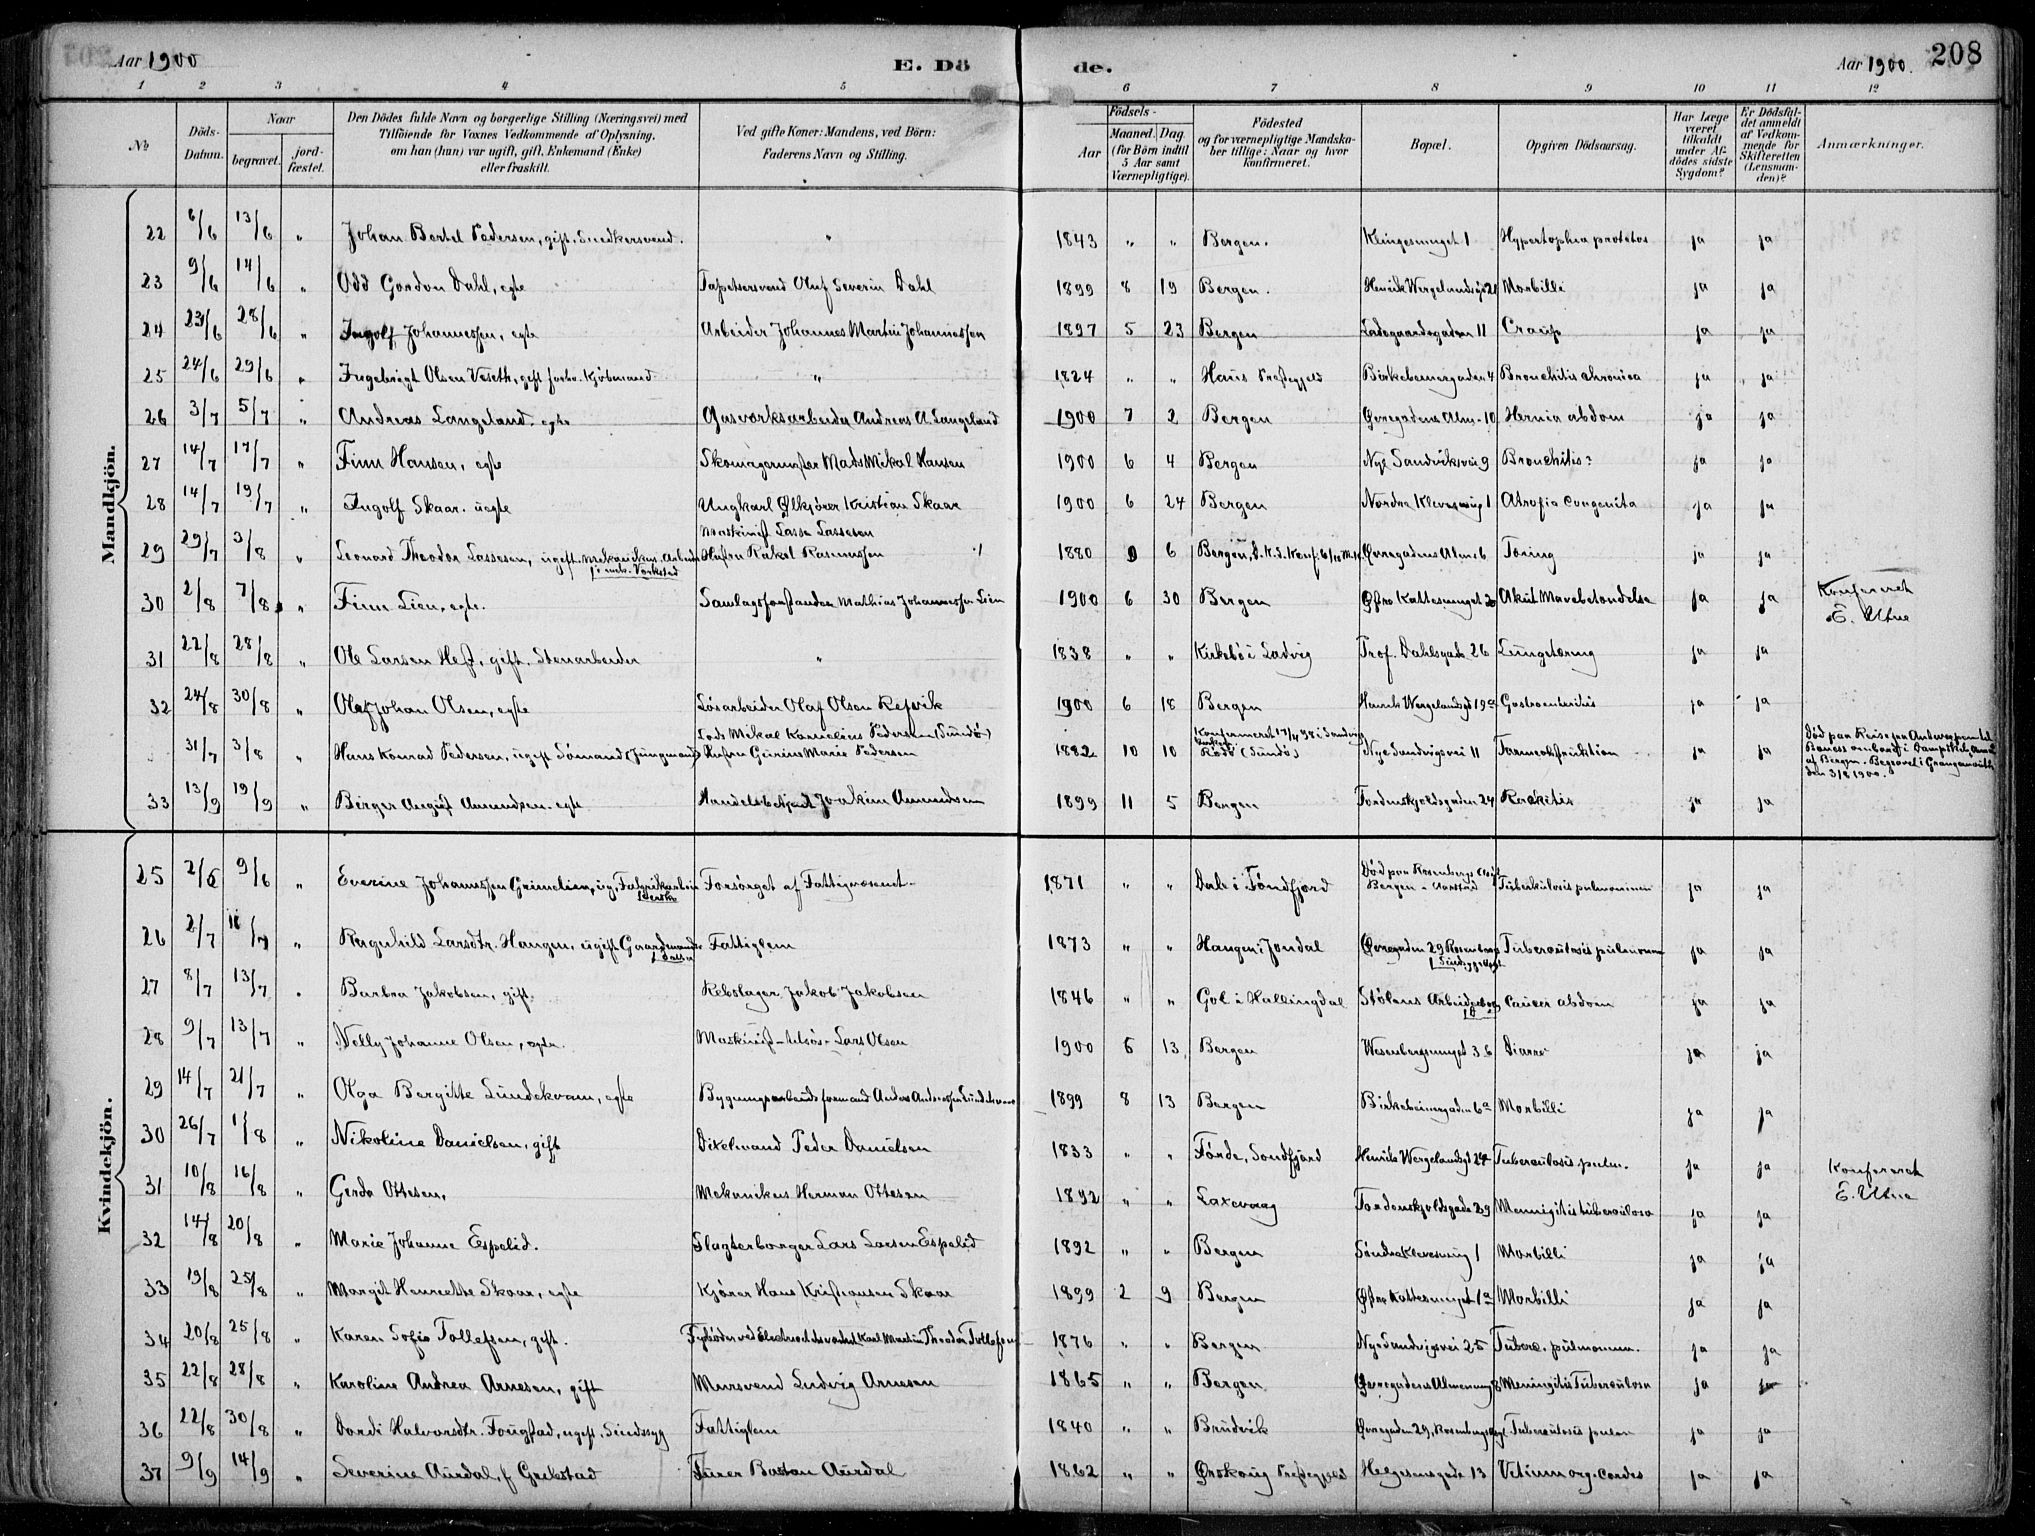 Aar 1900 E. Dö de. Aar 1900. 208
1 2 3 4 5 6 7 8 9 10 11 12
№ Döds-Datum. Naar begravet. jordfæstet. Den Dödes fulde Navn og borgerlige Stilling (Næringsvei) med Tilföiende for Voxnes Vedkommende af Oplysning. om han (hun) var ugift, gift, Enkemand (Enke) eller fraskilt. Ved gifte Koner: Mandens, ved Börn: Faderens Navn og Stilling. Födsels- Aar Maaned. Dag. (for Börn indtil 5 Aar samt Værnepligtige). Födested og for værnepligtige Mandskaber tillige: Naar og hvor konfirmeret. Bopæl. Opgiven Dödsaarsag. Har Læge været tilkaldt under Afdödes sidste Sygdom? Er Dödsfaldet anmeldt af Vedkommende for Skifteretten (Lensmanden)? Anmærkninger.
Mandkjön.
22 6/6 13/6 " Johan Bertel Pedersen, gift, Snedkersvend. " 1843 " " Bergen. Klingesmuget 1 Hypertophia protatos ja ja
23 9/6 14/6 " Odd Gordon Dahl, egte Tapetsersvend Oluf Severin Dahl 1899 8 19 Bergen. Henrik Wergelandsgd 21 Morbilli ja ja
24 23/6 28/6 " Ingolf Johannessen, egte Arbeider Johannes Martin Johannessen 1897 5 23 Bergen Ladegaardsgaden 11 Croup ja ja
25 24/6 29/6 " Ingebrigt Olsen Veseth, gift forhv. Kjøbmand " 1824 " " Haus Prestegjeld Birkebeinergaden 4 Bronchitis chronica ja ja
26 3/7 5/7 " Andreas Langeland. egte Gasværksarbeider Andreas A. Langeland 1900 7 2 Bergen Øvregadens Alm. 10 Hernia abdom ja ja
27 14/7 17/7 " Finn Hansen, egte Skomagermester Mads Mikal Hansen 1900 6 4 Bergen Nye Sandviksvei 9 Bronchitis ja ja
28 14/7 19/7 " Ingolf Skaar. uegte Ungkarl Ølkjører Kristian Skaar 1900 6 24 Bergen Nordre Klevesmug 1 Atrofia Congenita ja ja
29 29/7 3/8 " Leonard Theodor Lassesen, ugift. mekanikus. Arbeider i mek. Verksted Maskinist Lasse Lassesen Hustru Rakel Rasmussen 1880 9 6 Bergen, D.K.d. Konf. Øvregadens Alm. 6 Tæring ja ja
30 2/8 7/8 " Finn Lien, egte. Samlagsforstander Mathias Johannessen Lien 1900 6 30 Bergen Øfre Kattesmuget 20 Akut Mavebetændelse ja ja Konfereret E. Utne
31 22/8 28/8 " Ole Larsen Hest, gift. Stenarbeider " 1838 " " Kirkebö i Ladvig Prof. Dahlsgade 26 Lungetæring ja ja
32 24/8 30/8 " Olaf Johan Olsen, egte Løsarbeider Olaf Olsen Refvik 1900 6 18 Bergen Henrik Wergelandsgd 19a Gastroenteritis ja ja
31/7 3/8 " Hans Konrad Pedersen, ugift Sømand (Jungmand) Lods Mikal Kornelius Pedersen (Sundö) Hustru Gurine Marie Pedersen 1882 10 10 Konfirmeret 17/4 98 i Sandvig kirken Rödö (Sundö) Nye Sandvigsvei 11 Tarmeobstruktion ja ja Död paa Reise fra Antwerpen til Boness ombord i Dampskib af Bergen. Begravet i Grangemouth den 3/8 1900.
33 13/9 19/9 " Birger August Amundsen. egte Handelsbetjent Joakim Amundsen 1899 11 5 Bergen Tordenskjoldsgaden 24 Rerakitis ja ja
Kvindekjön.
25 2/6 9/6 " Everine Johannessen Grimelien, ug, Fabrikarbeiderske Forsørget af Fattigvæsenet 1871 " " Dale i Söndfjord Död paa Rosenbergs Asyl Bergen - Aarstad Tuberkulosis pulmonum ja ja
26 2/7 /7 " Ragnhild Larsdtr. Haugen, ugift Gaardmandsdatter Fattiglem 1873 " " Haugen i Jondal Øvregaden 29 Rosenbergs Sindsygeasyl Tuberculosis pulmonum ja ja
27 8/7 13/7 " Barbra Jakobsen, gift. Rebslager Jakob Jakobsen 1846 " " Gol i Hallingdal Stølens Arbeider Cancer abdom ja ja
28 9/7 13/7 " Nelly Johanne Olsen, egte. Maskinist tilsös Lars Olsen 1900 6 13 Bergen Wesenbergsmuget 36 Diarre ja ja
29 14/7 21/7 " Olga Bergitte Lundekvam, egte Bygningsarbeidsformand Anders Anderssen Lundekvam 1899 8 13 Bergen Birkebeinergaden 6a Morbilli ja ja
30 26/7 1/8 " Nikoline Danielsen, gift Dixelmand Peder Danielsen 1833 " " Förde, Söndfjord Henrik Wergelandsgd 24 Tuberculosis pulm. ja ja
31 10/8 16/8 " Gerda Ottesen, Mekanikus Herman Ottesen 1892 " " Laxevaag Tordenskjoldsgade 29 Mennigitis tuberculosa ja ja Konfereret E. Utne
32 14/8 20/8 " Marie Johanne Espelid. Slagterborger Lars Larsen Espelid 1892 " " Bergen Søndre Klevesmug 1 Morbilli ja ja
33 19/8 25/8 " Margit Henriette Skaar, egte Kjører Hans Kristiansen Skaar 1899 2 9 Bergen Øfre Kattesmuget 1a Morbilli ja ja
34 20/8 25/8 " Karen Sofie Tollefsen, gift. Fyrbøder ved Electricitetsverket Karl Martin Theodor Tollefsen 1876 " " Bergen Nye Sandvigsvei 25 Tuberc. pulmonum. ja ja
35 22/8 28/8 " Karoline Andrea Arnesen, gift Mursvend Ludvig Arnesen 1865 " " Bergen Øvregadens Almening 8 Meningitis Tuberculosa ja ja
36 22/8 30/8 " Dordi Halvorsdtr. Fougstad, ugift, Sindssyg Fattiglem 1840 " " Bruvik Øvregaden 29, Rosenbergs Asyl Tuberculosis pulm ja ja
37 9/9 14/9 " Severine Aurdal, f Grebstad Turer Bastian Aurdal 1862 " " Ørskoug Prestegjeld Helgesensgade 13 Vitium org. Cordis ja ja